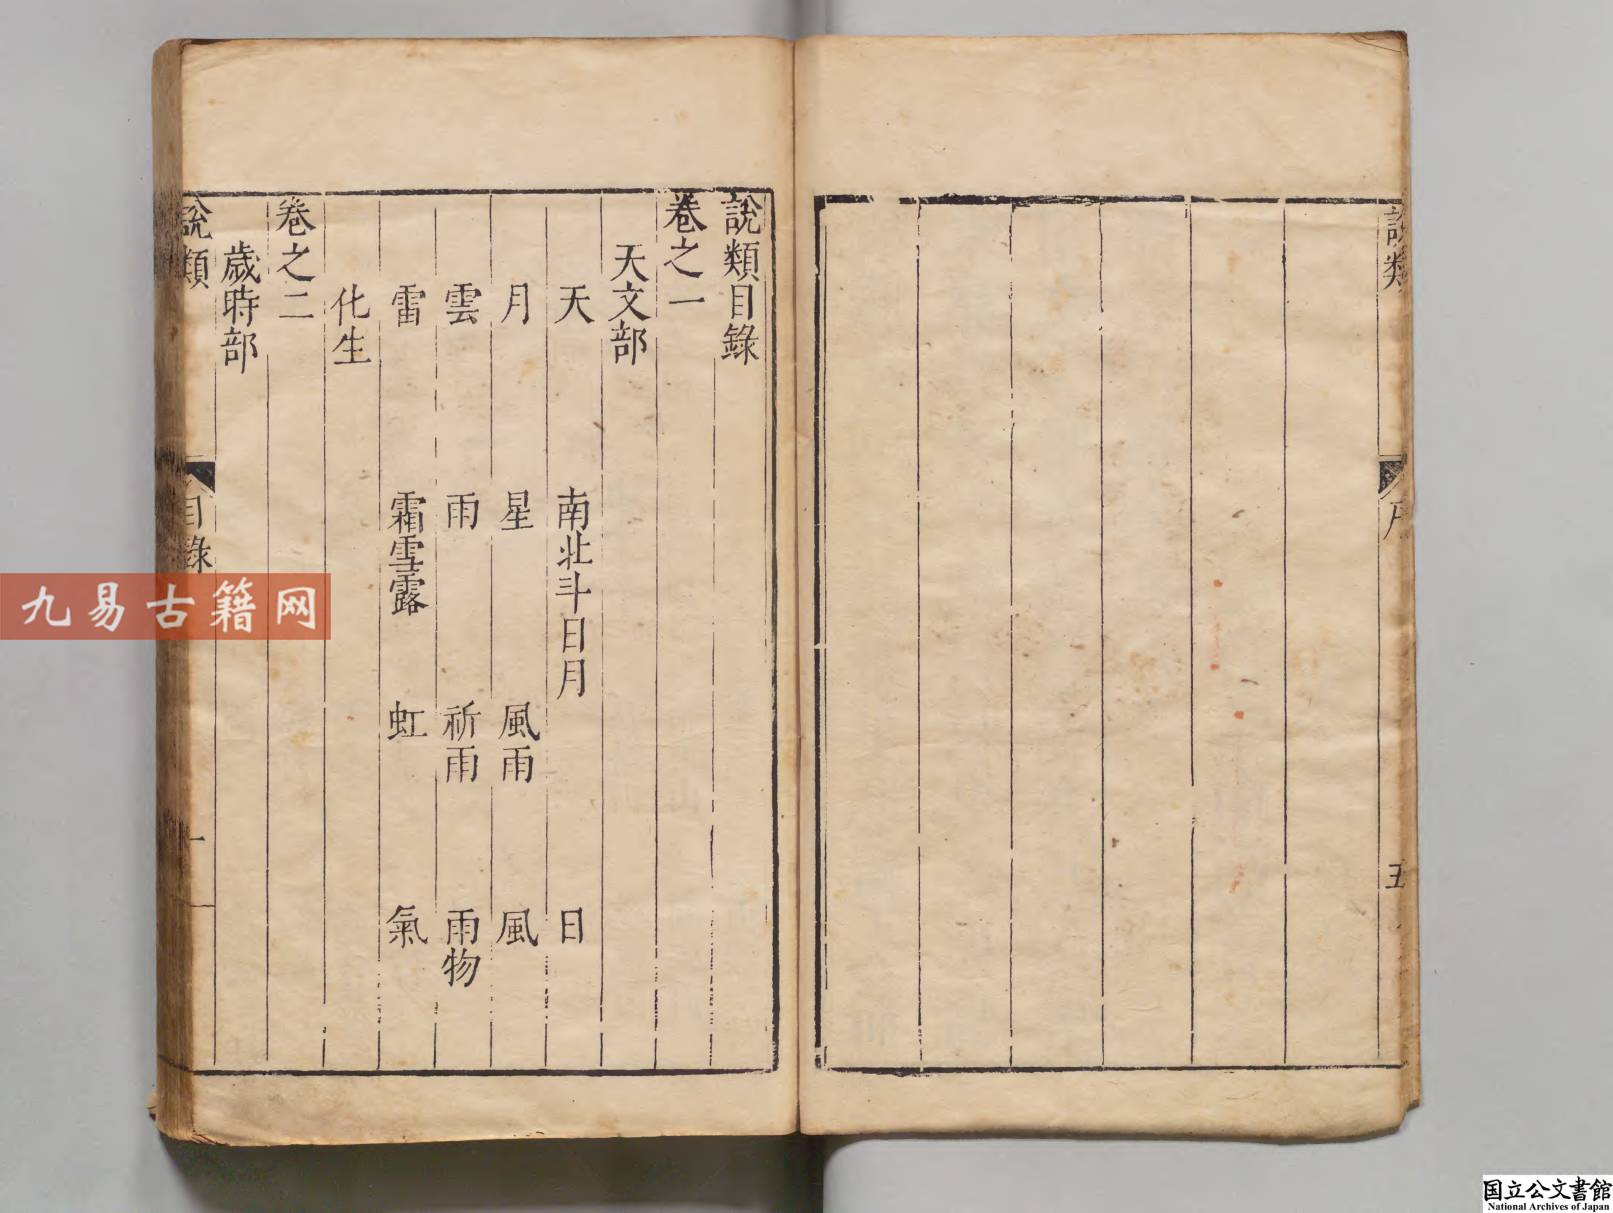 說類
序
五
說類目錄
卷之一
天文部
天 南北斗日月 日
月 星 風雨 風
雲 雨 祈雨 雨物
雷 霜雪露 虹 氣
化生
卷之二
歲時部
說類
目錄
一
九易古籍网
国立公文書館
National Archives of Japan